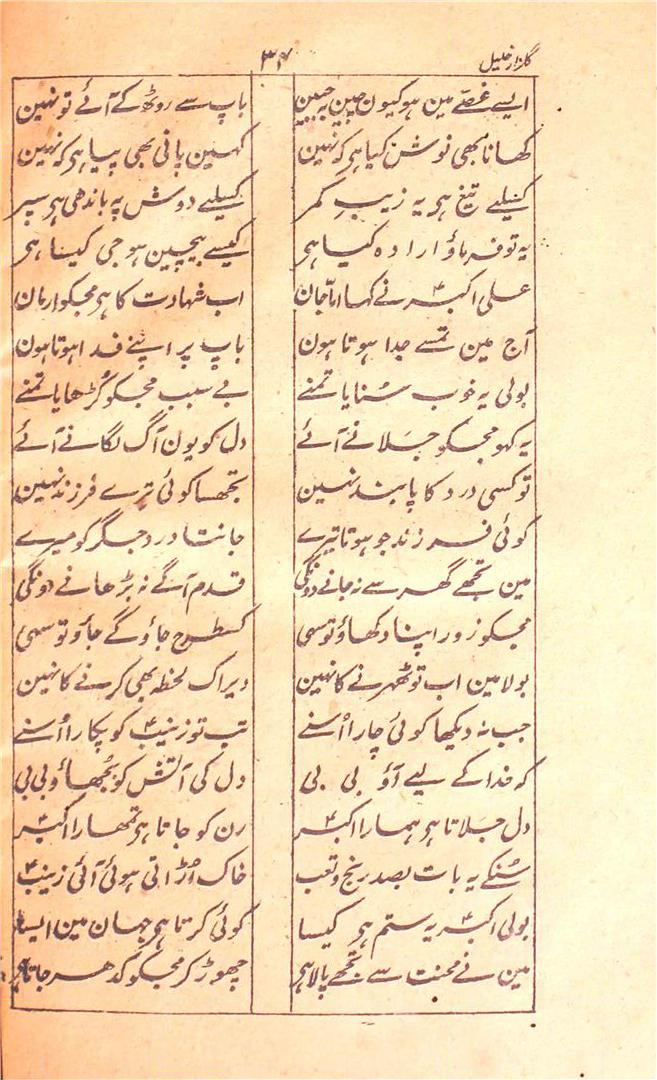 گلزار خلیل
۳۴
ایسے غصّے مین ہو کیون چین بہ جبین باپ سے روٹھ کے آئے تو نہین
کھانا بھی نوش کیا ہر کہ نہین کہین پانی بھی پیا ہر کہ نہین
کسلیے تیغ ہر یہ زیب کمر کسلیے دوش پہ باندھی ہر سپر
یہ تو فرماؤ ارادہ کیا ہر کیسے بیچین ہو جی کیسا ہر
علی اکبرؑ نے کہا امّا جان اب شہادت کا ہر مجکو ارمان
آج مین تمسے جدا ہوتا ہون باپ پر اپنے فدا ہوتا ہون
بولی یہ خوب سُنایا تمنے بے سبب مجکو کُڑھایا تمنے
یہ کہو مجکو جلانے آئے دل کو یون آگ لگانے آئے
تو کسی درد کا پابند نہین تجھسا کوئی ترے فرزند نہین
کوئی فرزند جو ہوتا تیرے جانتا درد جگر کو میرے
مین تجھے گھر سے نہ جانے دونگی قدم آگے نہ بڑھانے دونگی
مجکو زور اپنا دکھاؤ تو سہی کسطرح جاؤ گے جاؤ تو سہی
بولا مین اب تو ٹھہرنے کا نہین دیر اک لحظہ بھی کرنے کا نہین
جب نہ دیکھا کوئی چارا اُسنے تب تو زینبؑ کو پکارا اُسنے
کہ خدا کے لیے آؤ بی بی دل کی آتش کو بُجھاؤ بی بی
دل جلاتا ہر ہمارا اکبرؑ رن کو جاتا ہر تمھارا اکبرؑ
سُنکے یہ بات بصد رنج و تعب خاک اُڑاتی ہوئی آئی زینبؑ
بولی اکبرؑ یہ ستم ہر کیسا کوئی کرتا ہر جہان مین ایسا
مین نے محنت سے تجھے پالا ہر چھوڑ کر مجکو کدھر جاتا ہر